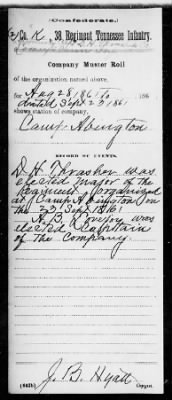 (Confederate.)
Co. K, 38 Regiment Tennessee Infantry.
Company Muster Roll
of the organization named above,
for Aug 28, 1861 to, 186
dated Sept 23 1861
shows station of company,
Camp Abington
RECORD OF EVENTS.
D. H. Thrasher was
elected Major of the
Regiment organized
at Camp Abington on
the 23 Sept 1861
A. B. Lovejoy was
elected Captain
of the Company.
J. B. Hyatt
Copyist.